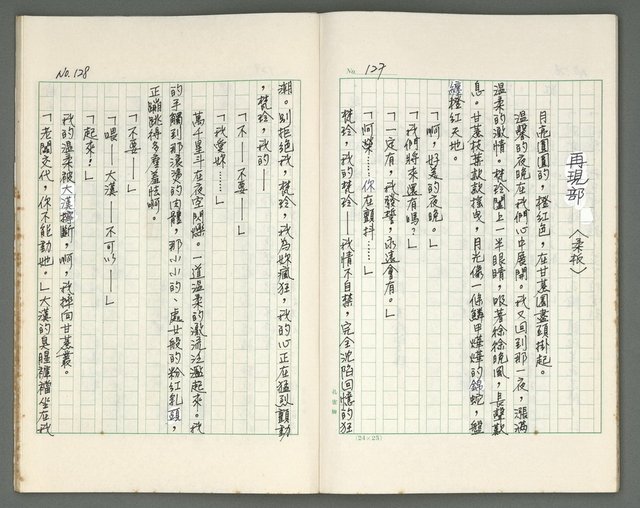 No. 127
再現部
〈柔板〉
月亮圓圓的,橙紅色,在甘蔗園盡頭掛起。
溫馨的夜晚在我們心中展開。我又回到那一夜,漲滿
溫柔的激情。梵玲闔上一半眼睛,吸著徐徐晚風,長聲歎
息。甘蔗枝葉款款搖曳,月光像一條鱗甲燁燁的錦蛇,盤
纏橙紅天地。
「啊,好美的夜晚。」
「我們將來還有嗎?」
「一定有,我發誓,永遠會有。」
「阿榮……你在顫抖……」
梵玲,我的梵玲——我情不自禁,完全沈陷回憶的狂
(24×25)
No. 128
潮。別拒絕我,梵玲,我為妳瘋狂,我的心正在猛烈顫動
,梵玲,我的——
「我愛妳……」
「不——不要——」
萬千星斗在夜空閃爍。一道溫柔的激流泛濫起來。我
的手觸到那滾燙的肉體,那小小的、處女般的粉紅乳頭,
正蹦跳得多麼羞怯啊。
「不要——」
「喂——大漢——不可以——」
「起來!」
我的溫柔被大漢擰斷,啊,我摔向甘蔗叢。
「老闆交代,你不能動她。」大漢的臭腥褲襠坐在我